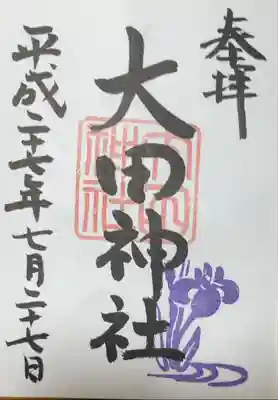 奉拝
大田神社
平成二十七年七月二十七日